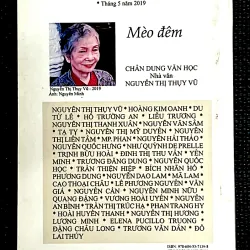 * Tháng 5 năm 2019
Mèo đêm
CHÂN DUNG VĂN HỌC
Nhà văn
NGUYỄN THỊ THỤY VŨ
Nguyễn Thị Thụy Vũ - 2019
Ảnh: Nguyên Minh
NGUYỄN THỊ THỤY VŨ * HOÀNG KIM OANH * DU
TỬ LÊ * HỒ TRƯỜNG AN * LIỄU TRƯƠNG
NGUYỄN THỊ THANH XUÂN * NGUYỄN VĂN SÂM
* TẠ TỴ * NGUYỄN THỊ MỸ DUYÊN * NGUYỄN
THỊ LIÊN TÂM * MP. PHAN * NGUYỄN HẢI THẢO *
NGUYỄN QUỐC HƯNG * NHƯ QUỲNH DE PRELLE
* TRỊNH BỬU HOÀI * ĐINH THỊ THU VÂN * YẾN
MINH * TRƯƠNG ĐẢNG DUNG * NGUYỄN QUỐC
HỌC * TRẦN THIỆN HIỆP * BÍCH NHÂN HỒ *
PHƯƠNG * NGUYỄN ĐẠO LAM * MÃ LAM *
CAO THOẠI CHÂU * LÊ PHƯƠNG NGUYÊN * VĂN
GIÁ * NGUYÊN CẨN * NGUYÊN MINH NỮU *
QUANG ĐẶNG * VƯƠNG HOÀI UYÊN * NGUYỄN
AN BÌNH * TRẦN THỊ TRÚC HẠ * PHAN TRANG HY
* HOÀI HUYỀN THANH * NGUYỄN THỊ HƯƠNG *
LƯƠNG MINH * ELENA PUCILLO TRUONG *
ĐẶNG CHÂU LONG * TRƯƠNG VĂN DÂN * ĐỖ
LAI THÚY